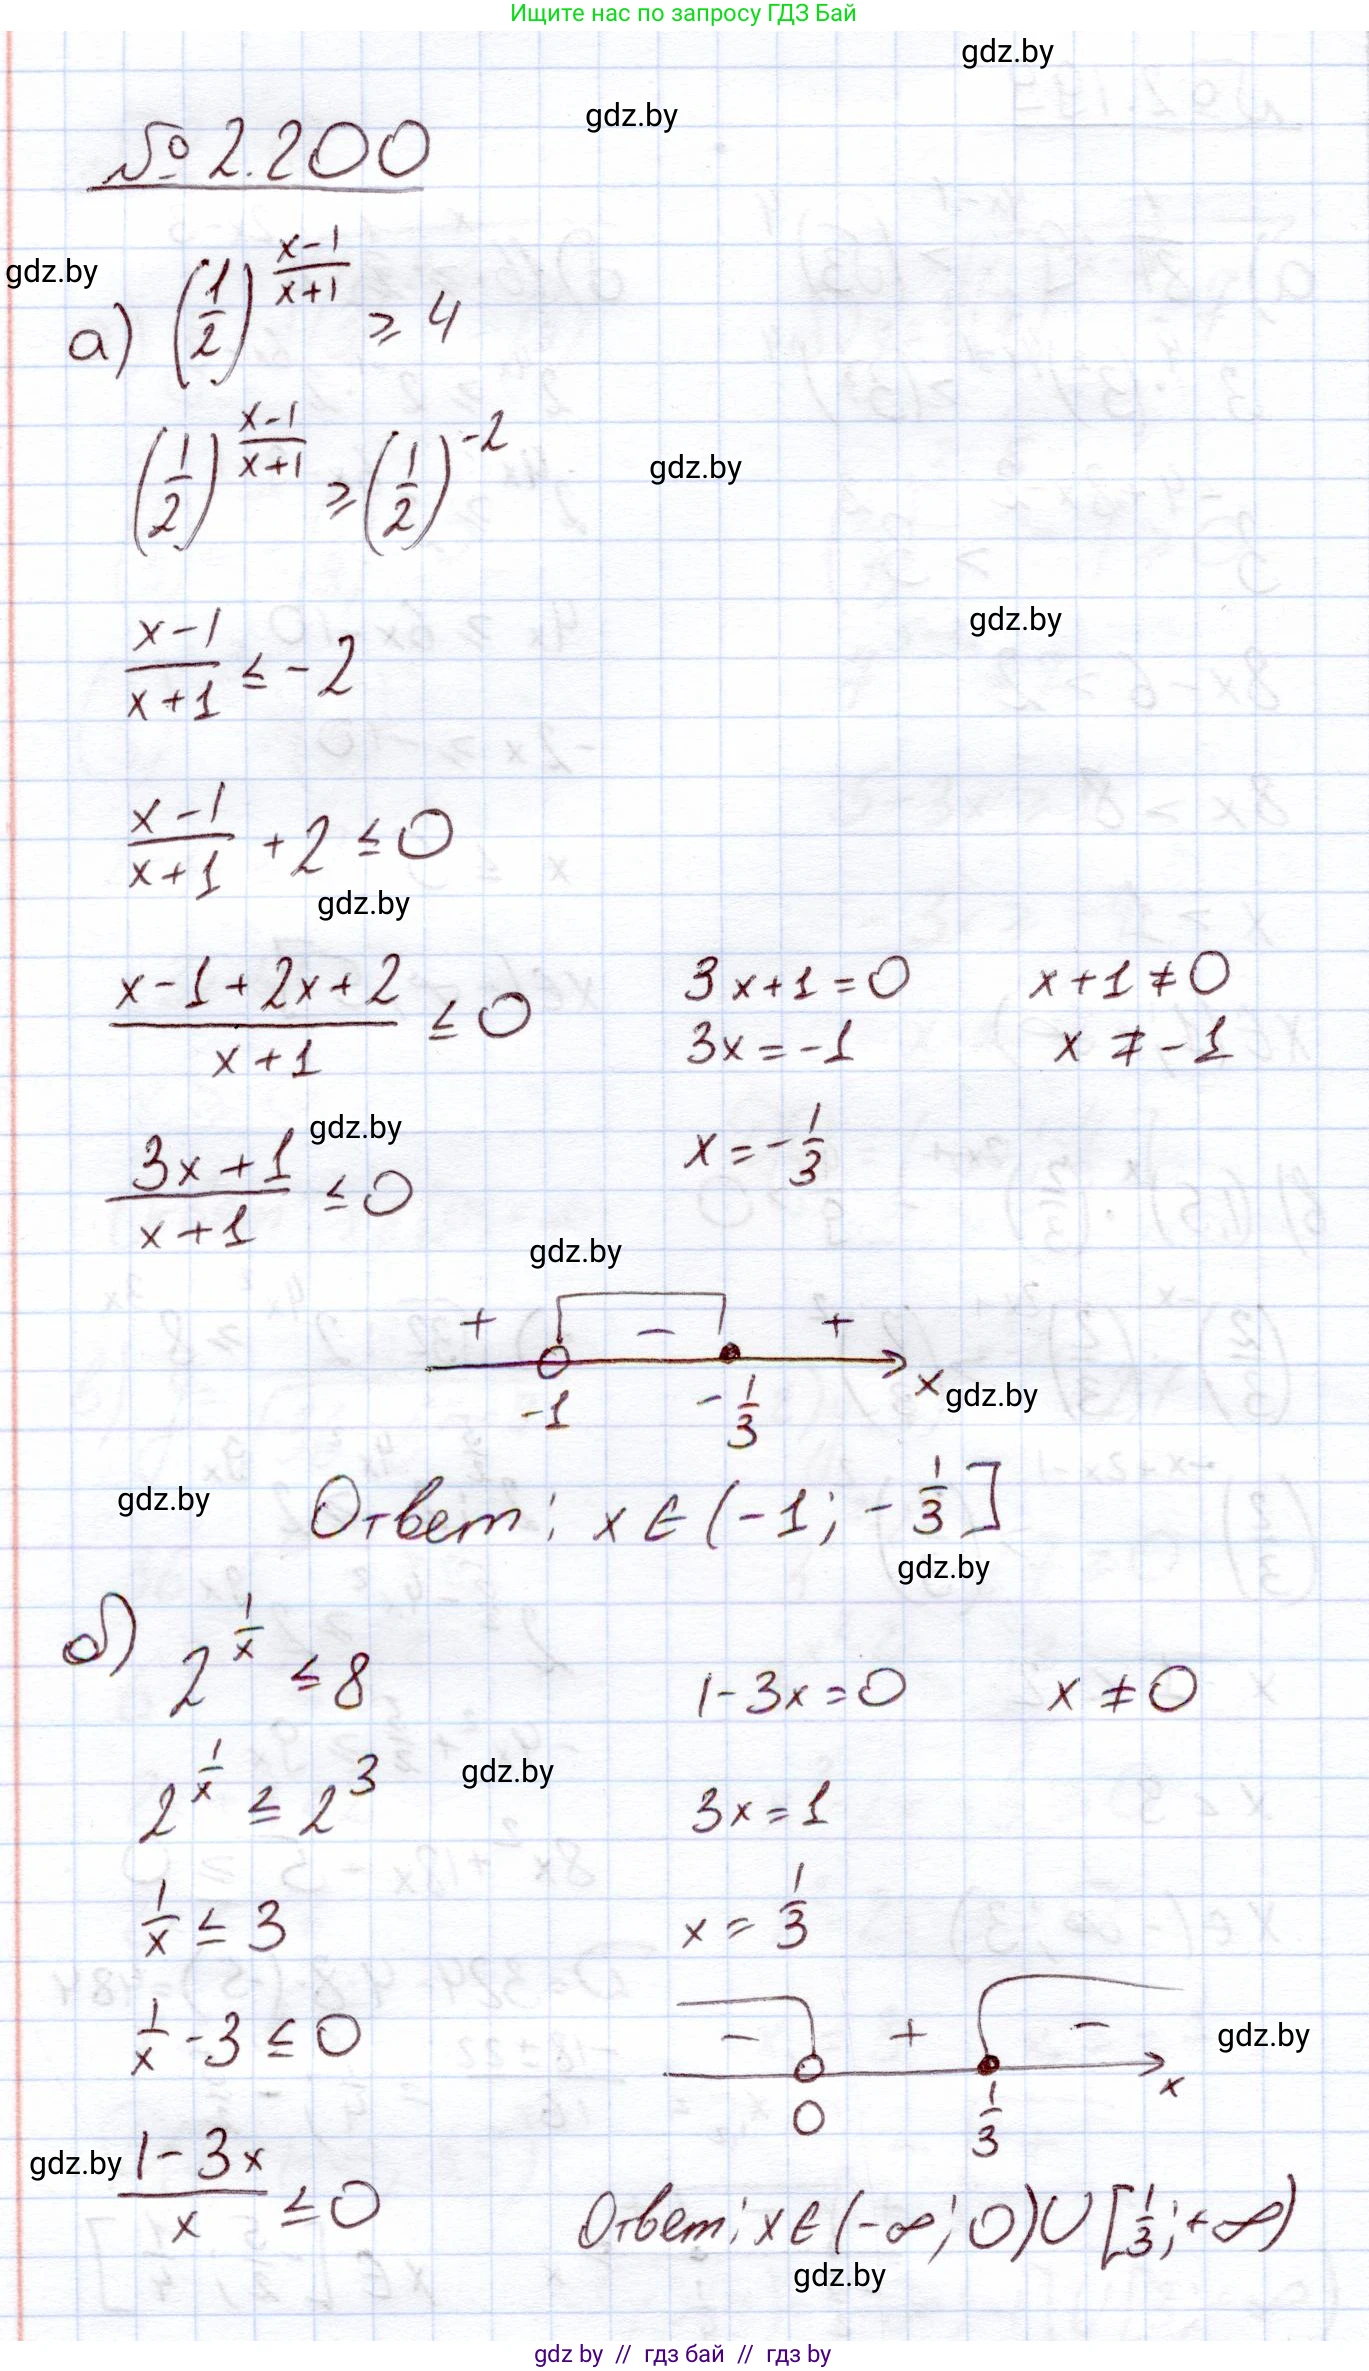 Ищите нас по запросу ГДЗ Бай
gdz.by
gdz.by
№ 2.200
gdz.by
а) (1/2)^((x-1)/(x+1)) ⩾ 4
(1/2)^((x-1)/(x+1)) ⩾ (1/2)^(-2)
gdz.by
gdz.by
(x-1)/(x+1) ≤ -2
(x-1)/(x+1) + 2 ≤ 0
gdz.by
(x-1+2x+2)/(x+1) ≤ 0
3x+1=0
3x=-1
x=-1/3
x+1≠0
x≠-1
gdz.by
(3x+1)/(x+1) ≤ 0
gdz.by
+ - +
-1 -1/3 x
gdz.by
gdz.by
Ответ: x∈(-1; -1/3]
gdz.by
б) 2^(1/x) ≤ 8
2^(1/x) ≤ 2^3
gdz.by
1/x ≤ 3
1/x - 3 ≤ 0
(1-3x)/x ≤ 0
gdz.by
1-3x=0
3x=1
x=1/3
x≠0
- + -
0 1/3 x
gdz.by
Ответ: x∈(-∞; 0)∪[1/3; +∞)
gdz.by
gdz by // гдз бай // гдз by